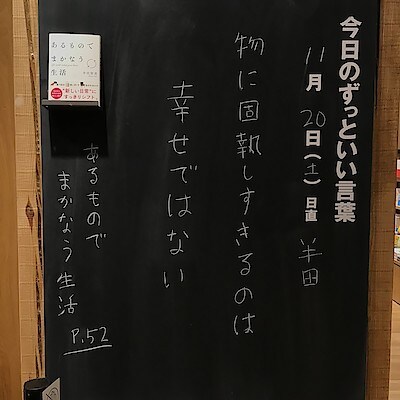 今日のずっといい言葉
11月20日(土) 日直 半田
物に固執しすぎるのは
幸せではない
あるもので
まかなう生活
P.52
あるもので
まかなう
生活
"新しい日常"に
すっきりシフト。